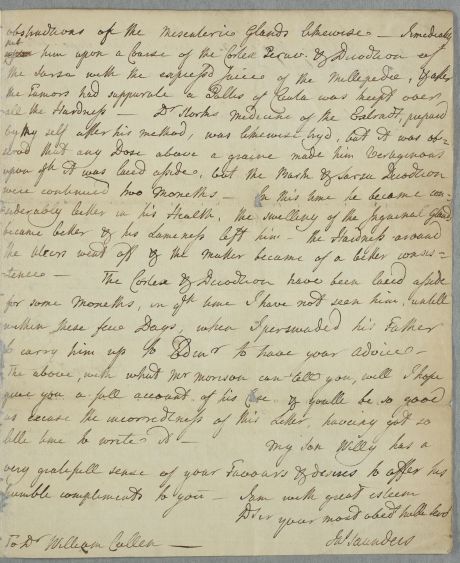 obstructions of the Mesenteric Glands likewise – I imediatly
put him upon a Course of the Cortex Peruv. & Decoction of
the Sarsa with the express'd juice of the Millepedie, & after
the Tumors had suppurate a Pultes of Cicuta was keept over
all the Hardness – Dr Storks medicine of the Extract, prepaird
by my self after his method, was likewise tryd, but it was
that any Dose above a graine made him Veraginous
upon qch it was laeid aside, but the Bark & Sarsa Decoction
were continued two Moneths – In this time he became con-
siderably better in his Health, the swelling of the Inguinal Gland
became better & his Lameness left him – the Hardness around
the Ulcers went off & the matter became of a better consis-
tence – The Cortex & Decoction have been laeid aside
for some Moneths, in qch time I have not seen him, untill
within these few Days, when I perswaded his Father
to carry him up to Edinr to have your advice –
The above, with what Mr morison can tell you, will I hope
give you a full account of his Case & you'll be so good
as excuse the incorrectness of this Letter, having got so
litle time to write it – My Son Willy has a
very gratefull sense of your Favours & desires to offer his
humble complements to you – I am with great esteem
Dr Sir your most obedt Hulle Servt
To Dr William Cullen — Saunders